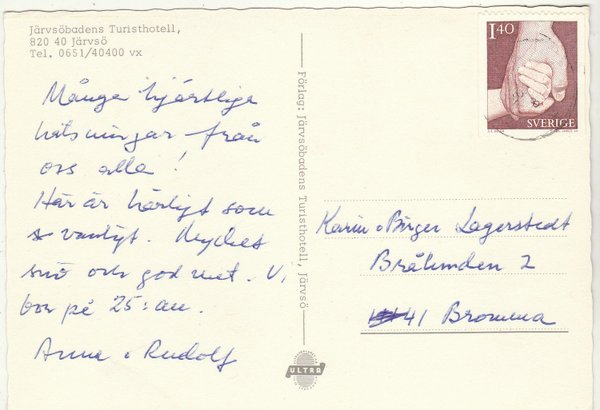 Järvsöbadens Turisthotell,
820 40 Järvsö
Tel. 0651/40400 vx
Många hjärtliga
hälsningar från
oss alla!
Här är härligt som
vanligt. Mycket
snö och god mat. Vi
bor på 25:an.
Anna o Rudolf
Förlag: Järvsöbadens Turisthotell, Järvsö
ULTRA
1.40
SVERIGE
Karin o Birger Lagerstedt
2
41 Bromma